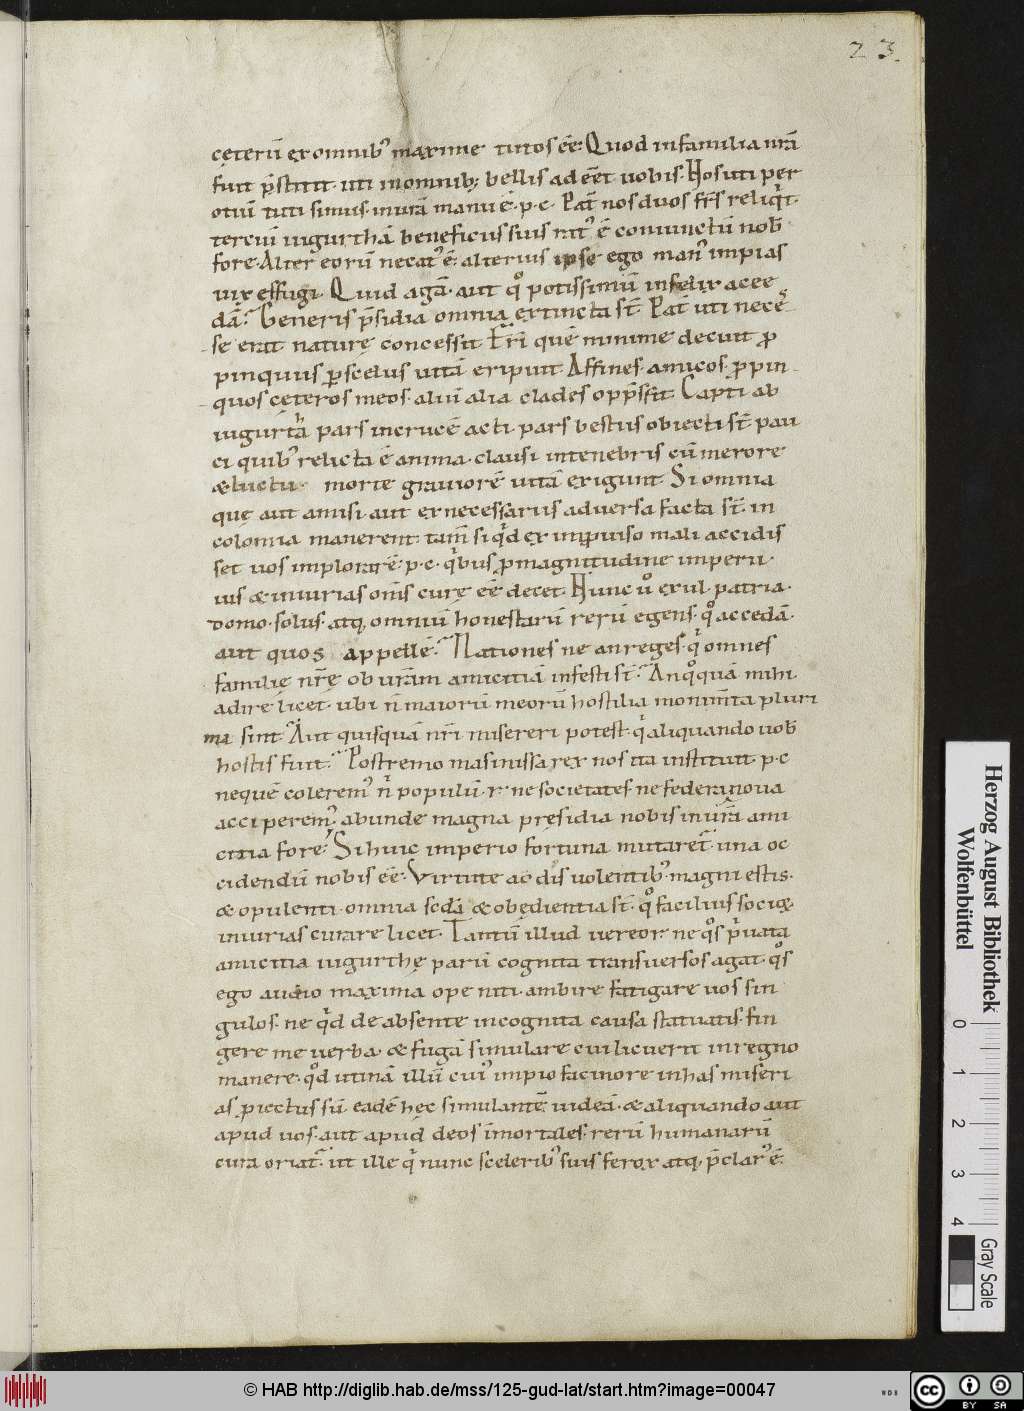 23.
cęterū ex omnib᾽ maxime tutos eē. Quod infamilia nr̄a
fuit p̄stitit. uti inomnib; bellis adeēt uobis. Hos uti per
otiū tuti simus. inur̄a manu ē. p. c. Pat̄ nos duos fr̄s reliq̇t.
terciū iugurthā beneficiis suis rat᾽ ē coniunctū nob̄
fore. Alter eorū necat᾽ ē. alterius ipse ego man᾽ impias
uix effugi. Quid agā. aut qͦ potissimū infelix acce
dā? Generis p̄sidia omnia extincta st̄. Pat̄ uti necēs
se erat naturę concessit. Fr̄i quē minime decuit ꝓ
pinquus ꝑ scelus uitā eripuit. Affines. amicos. ꝓpin
quos cęteros meos. aliū alia clades opp̄ssit. Capti ab
iugurt̄a pars incrucē acti. pars bestiis obiecti st̄. pau
ci quib᾽ relicta ē anima. clausi intenebris cū merore
& luctu morte grauiorē uitā exigunt. Si omnia
quę aut amisi. aut ex necessariis aduersa facta st̄. in
colomia manerent. tam̄ si qd ex inꝓuiso mali accidis
set uos implorarē. p. c. qbus ꝓ magnitudine imperii.
ius & iniurias om̄s curę eē decet. Hunc ů exul patria.
domo. solus. atq; omniū honestarū rerū egens. qͦ accedā.
aut quos appellē? Nationes ne an reges. q̇ omnes
familię nr̄ę ob ur̄am amicitiā infesti st̄? An qͦquā mihi
adire licet. ubi n̄ maiorū meorū hostilia monim̄ta pluri
ma sint? Aut quisquā nr̄i misereri potest. q̇ aliquando uob̄
hostis fuit? Postremo masinissa rex nos ita instituit. p. c
nequē colerem᾽ n̄ populū. r. ne societates ne federa noua
acciperem᾽. abunde magna pręsidia nobis inur̄a ami
citia fore. Si huic imperio fortuna mutaret᾽ una oc
cidendū nobis eē. Virtute ac dis uolentib᾽ magni estis.
& opulenti. omnia scdā & obędientia st̄. qͦ facilius socię
iniurias curare licet. Tantū illud uereor. ne qͦs p̄uata
amicitia iugurthę parū cognita transuersos agat. qͦs
ego audio maxima ope niti. ambire fatigare uos sin
gulos. ne qd de absente incognita causa statuatis. fin
gere me uerba. & fugā simulare cui licuerit in regno
manere. qͦd utinā illū cui᾽ impio facinore inhas miseri
as ꝓiectus sū eadē hęc simulantē uideā. & aliquando aut
apud uos. aut apud deos īmortales. rerū humanarū
cura oriat᾽. ut ille q̇ nunc scelerib᾽ suis ferox atq; p̄clar᾽ ē.
Herzog August Bibliothek
Wolfenbüttel
0 1 2 3 4
Gray Scale
© HAB http://diglib.hab.de/mss/125-gud-lat/start.htm?image=00047
WDB
cc BY SA